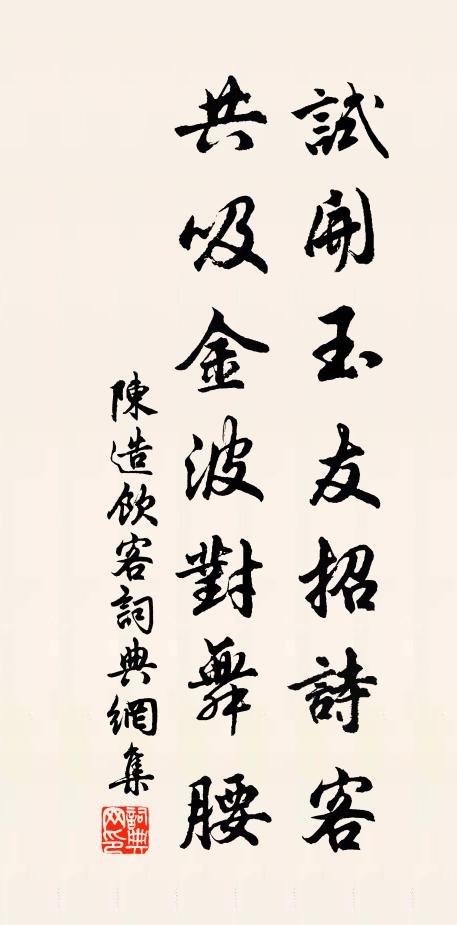 試開玉友招詩客
共吸金波對舞腰
陳造飲客詞典網集
詞典網印